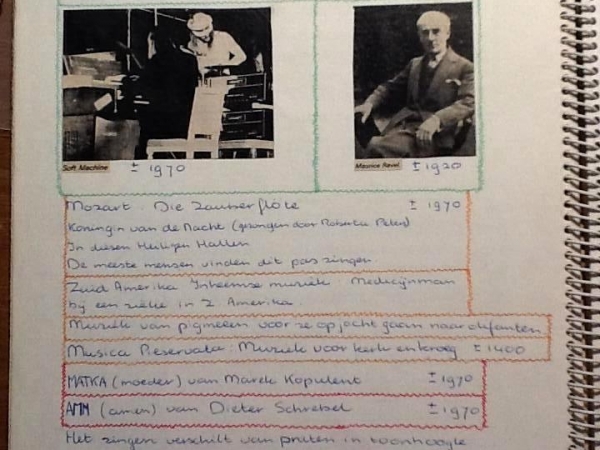 Soft Machine ± 1970
Maurice Ravel ± 1920
Mozart. Die Zauberflöte ± 1970
Koningin van de Nacht (gezongen door Roberta Peters)
In diesen Heiligen Hallen
De meeste mensen vinden dit pas zingen.
Zuid Amerika Inheemse muziek. Medicijnman
bij een zieke in Z. Amerika.
Muziek van pigmeeën voor ze op jacht gaan naar olifanten.
Musica Reservata: Muziek voor kerk en kroeg ± 1400
MATKA (moeder) van Marek Kopelent ± 1970
AMN (amen) van Dieter Schnebel ± 1970
Het zingen verschilt van praten in toonhoogte